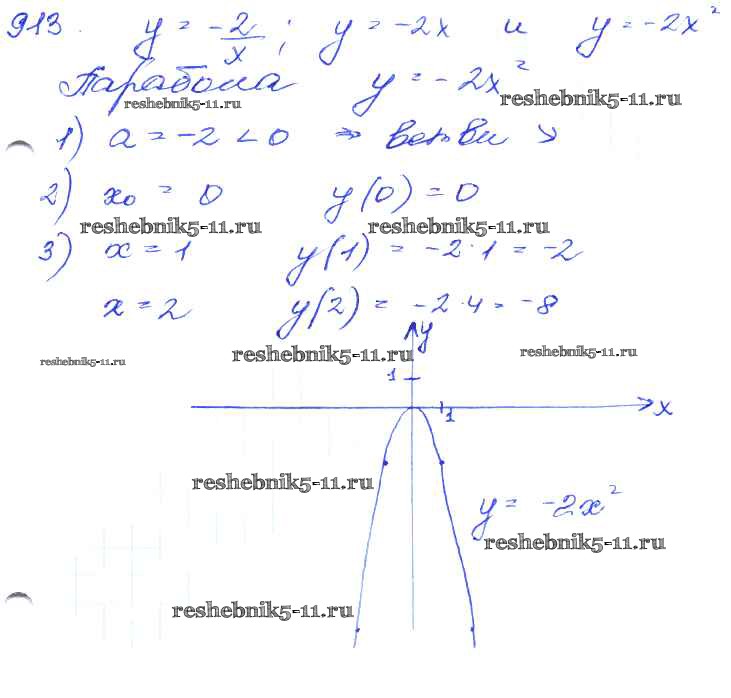 913. y = -2/x ; y = -2x и y = -2x²
Парабола y = -2x²
reshebnik5-11.ru reshebnik5-11.ru
1) a = -2 < 0 => ветви ↘
2) x₀ = 0 y(0) = 0
reshebnik5-11.ru reshebnik5-11.ru
3) x = 1 y(1) = -2·1 = -2
x = 2 y(2) = -2·4 = -8
reshebnik5-11.ru reshebnik5-11.ru reshebnik5-11.ru
y
1
1 x
reshebnik5-11.ru
y = -2x²
reshebnik5-11.ru
reshebnik5-11.ru